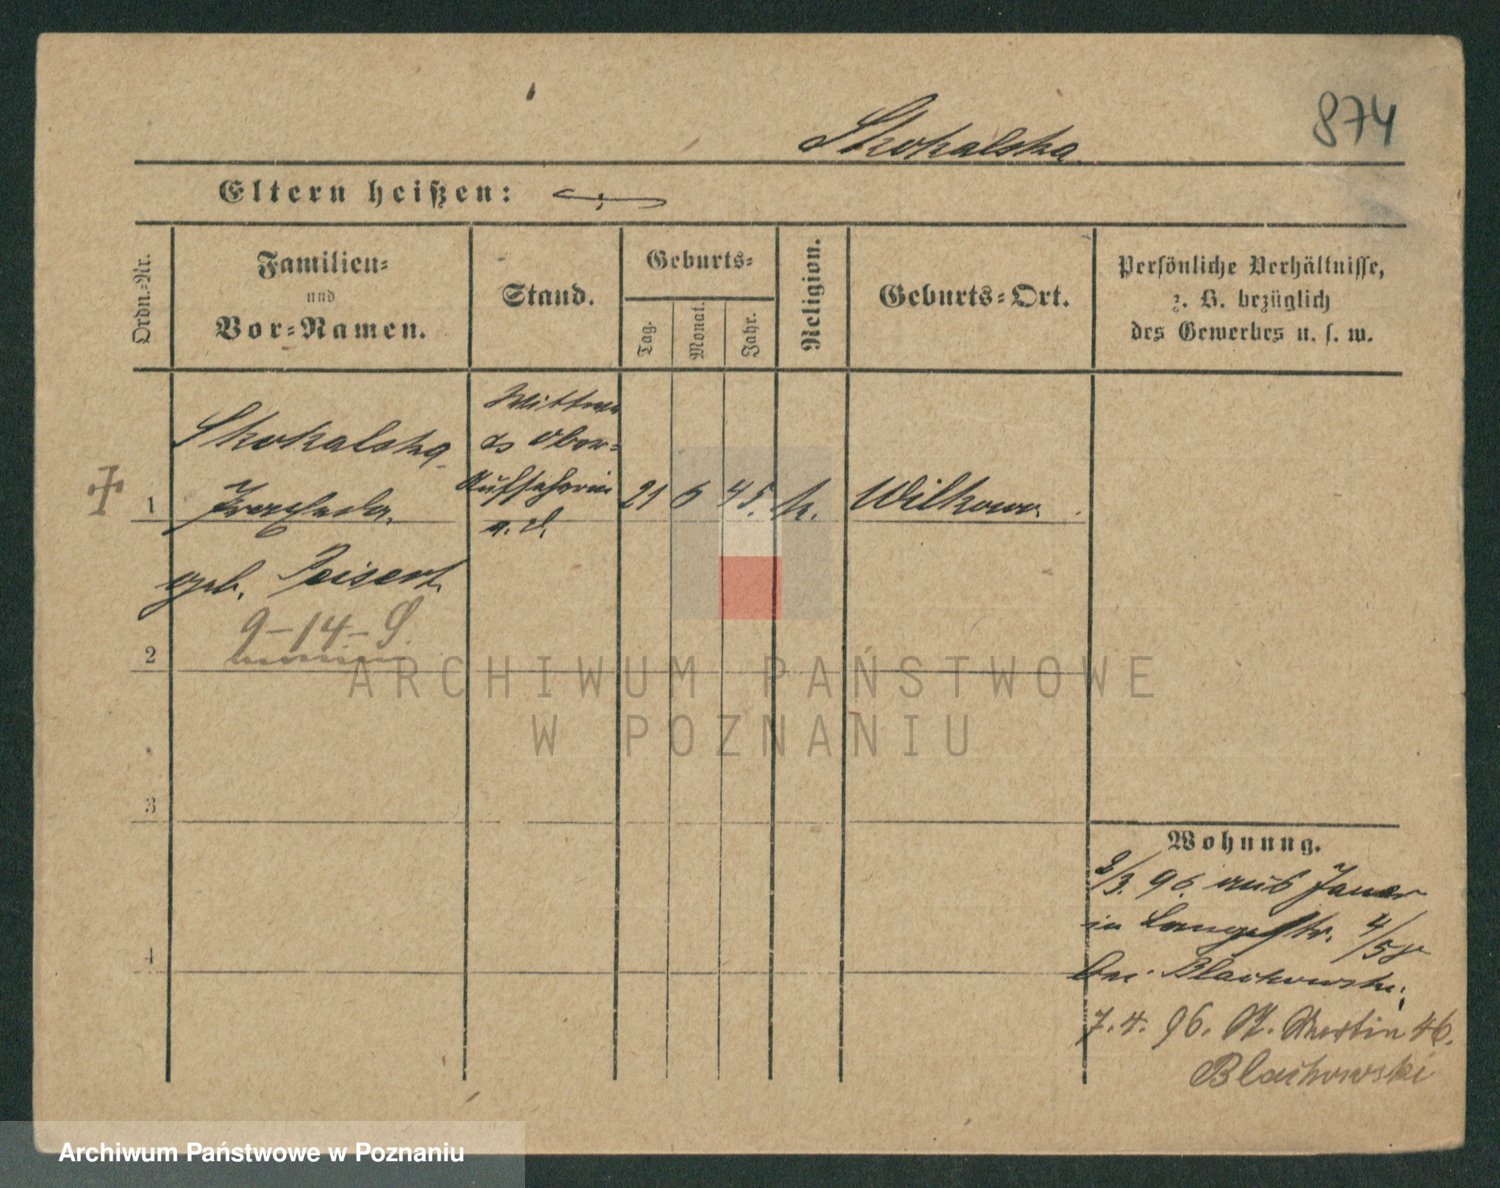 874
Skokalska
Eltern heißen:
Ordn.-Nr.
Familien-
und
Vor-Namen.
Stand.
Geburts-
Tag.
Monat.
Jahr.
Religion.
Geburts-Ort.
Persönliche Verhältnisse,
z. B. bezüglich
des Gewerbes u. s. w.
1
Skokalska
geb. Peisert
Wittwe
ds Ober-
a. D.
21 6 45. k. Wilkowo.
9-14-S.
2
3
4
Wohnung.
2/3. 96. aus Jauer
in Langestr. 4/58
bei Blachowski,
7. 4. 96. St. Martin 46.
Blachowski
ARCHIWUM PAŃSTWOWE
W POZNANIU
Archiwum Państwowe w Poznaniu